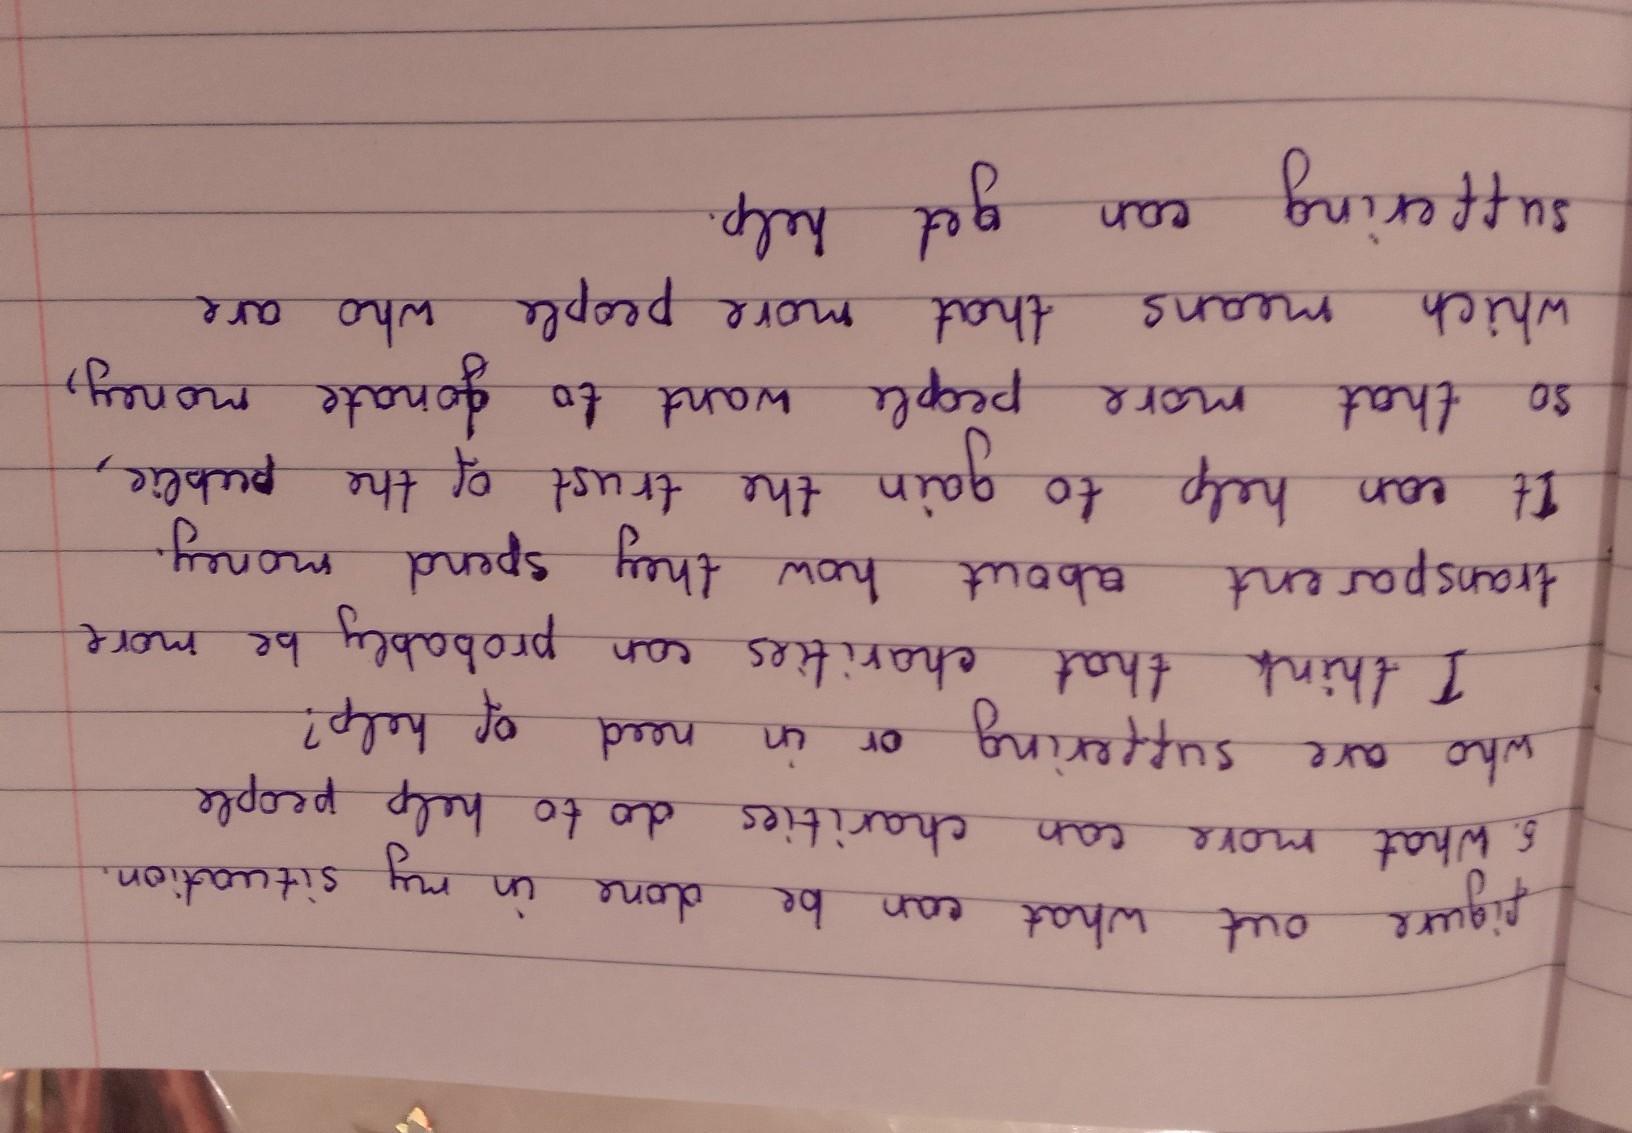 figure out what can be done in my situation.
5. What more can charities do to help people
who are suffering or in need of help?
I think that charities can probably be more
transparent about how they spend money.
It can help to gain the trust of the public,
so that more people want to donate money,
which means that more people who are
suffering can get help.